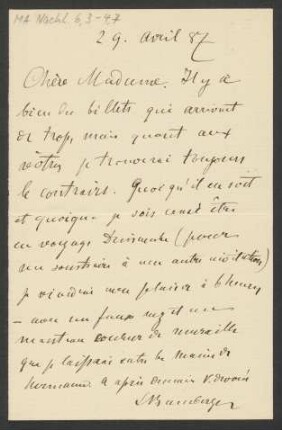 MA Nachl. 6,3-47
29. Avril 87
Chère Madame. Il y a
bien des billets qui arrivent
de trop, mais quant aux
vôtres je trouverai toujours
le contraire. Quoi qu'il en soit
et quoique je sois censé être
en voyage Dimanche (pour
me soustraire à une autre invitation)
je viendrai avec plaisir à 6 heures
- avec un faux nez et un
manteau couleur de muraille
que je laisserai entre les mains de
Hermann. à après demain
LBamberger